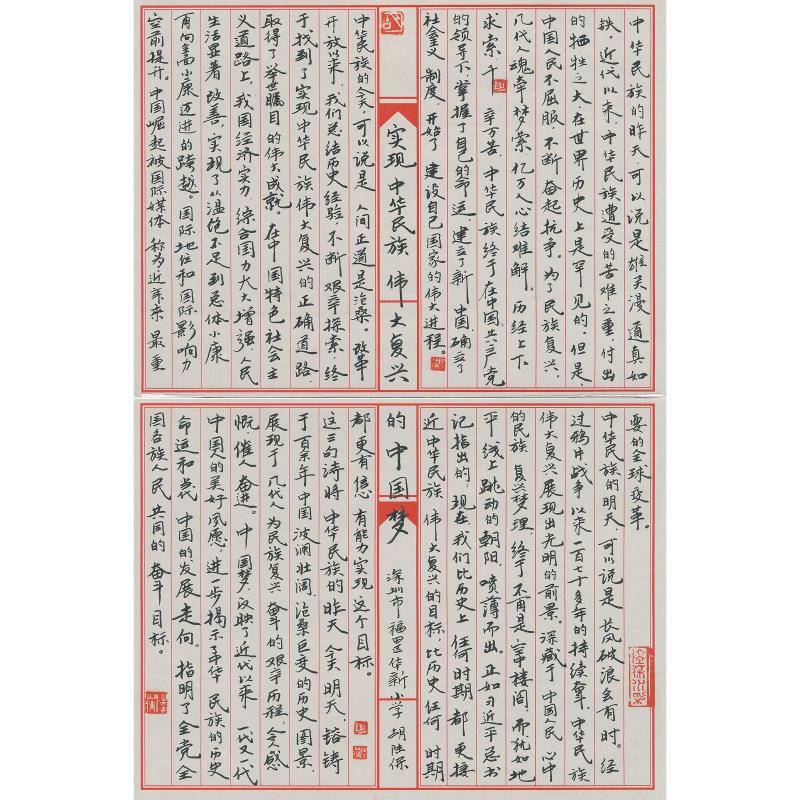 中华民族的昨天可以说是雄关漫道真如
铁，近代以来，中华民族遭受的苦难之重，付出
的牺牲之大，在世界历史上是罕见的。但是，
中国人民不屈服，不断奋起抗争，为了民族复兴，
几代人魂牵梦萦，亿万人心结难解。历经上下
求索、千辛万苦，中华民族终于在中国共产党
的领导下，掌握了自己的命运，建立了新中国，确立了
社会主义制度，开始了建设自己国家的伟大进程。
实现中华民族伟大复兴
中华民族的今天可以说是人间正道是沧桑。改革
开放以来，我们总结历史经验，不断艰辛探索，终
于找到了实现中华民族伟大复兴的正确道路，
取得了举世瞩目的伟大成就。在中国特色社会主
义道路上，我国经济实力、综合国力大大增强，人民
生活显著改善，实现了从温饱不足到总体小康
再向全面小康迈进的跨越。国际地位和国际影响力
空前提升。中国崛起被国际媒体称为近年来最重
要的全球变革。
中华民族的明天，可以说是长风破浪会有时。经
过鸦片战争以来一百七十多年的持续奋斗，中华民族
伟大复兴展现出光明的前景。深藏于中国人民心中
的民族复兴梦理，终于不再是空中楼阁，而犹如地
平线上跳动的朝阳，喷薄而出。正如习近平总书
记指出的：现在我们比历史上任何时期都更接
近中华民族伟大复兴的目标，比历史任何时期
的中国梦
深圳市福田区华新小学
都更有信心有能力实现这个目标。
这三句诗将中华民族的昨天今天明天，镕铸
于百余年中国波澜壮阔、沧桑巨变的历史图景，
展现于几代人为民族复兴奋斗的艰辛历程，令人感
慨，催人奋进。中国梦，反映了近代以来一代又一代
中国人的美好夙愿，进一步揭示了中华民族的历史
命运和当代中国的发展走向。指明了全党全
国各族人民共同的奋斗目标。